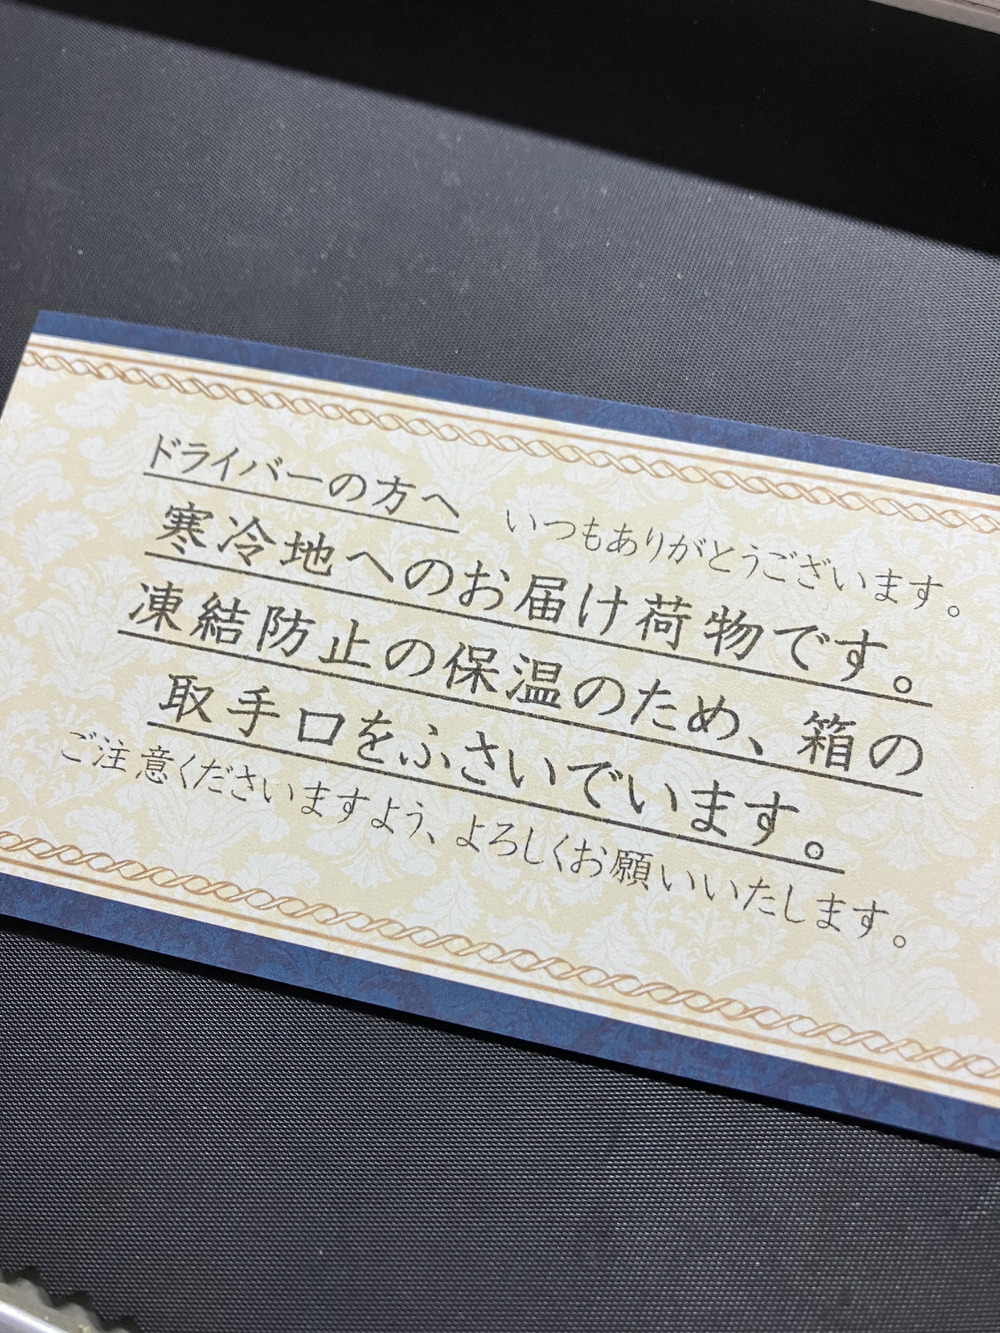 ドライバーの方へ いつもありがとうございます。
寒冷地へのお届け荷物です。
凍結防止の保温のため、箱の
取手口をふさいでいます。
ご注意くださいますよう、よろしくお願いいたします。